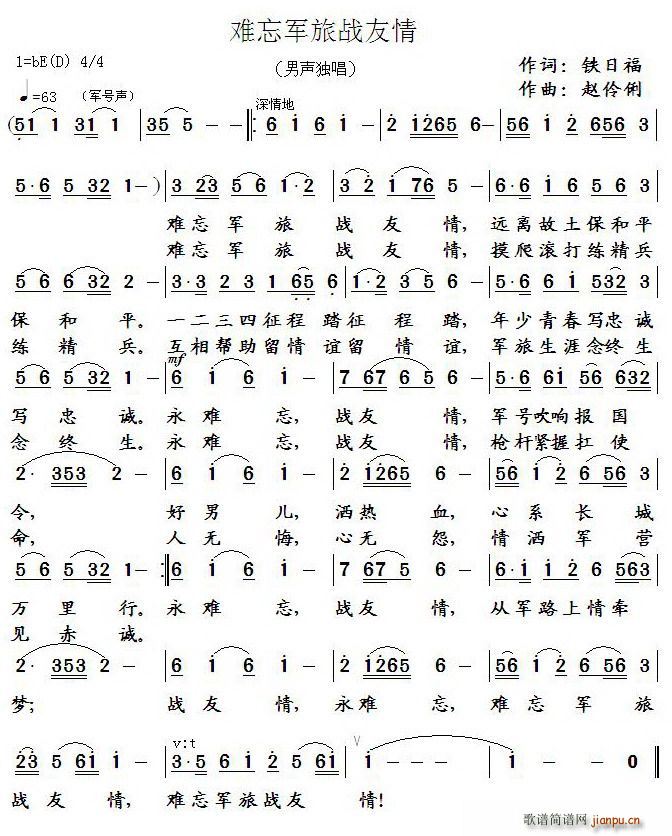 难忘军旅战友情
1=bE(D) 4/4
（男声独唱）
作词：铁日福
♩=63 （军号声）
作曲：赵伶俐
深情地
(51 1 31 1 | 35 5 - - |: 6 i 6 i - | 2 i265 6 - | 56 i 2 56 3
5·6 5 32 1 - ) | 3 23 5 6 1·2 | 3 2 i 76 5 - | 6·6 i 6 5 6 3
难忘 军 旅 战 友 情, 远离故土保和平
难忘 军 旅 战 友 情, 摸爬滚打练精兵
5 6 6 32 1 - | 3·3 2 3 1 65 6 | 1 2 3 5 6 - | 5·6 6 i 5 32 3
保 和 平。 一二三四征程 踏征 程 踏, 年少青春写忠诚
练 精 兵。 互相帮助留情 谊留 情 谊, 军旅生涯念终生
mf
5 6 5 32 1 - | 6 i 6 i - | 7 67 6 5 6 - | 5·6 6i 56 632
写 忠 诚。 永 难 忘, 战友 情, 军号吹响报 国
念 终 生。 永 难 忘, 战友 情, 枪杆紧握扛 使
2· 353 2 - | 6 i 6 i - | 2 i265 6 - | 56 i 2 56 3
令, 好 男 儿, 洒热 血, 心 系 长 城
命, 人 无 悔, 心无 怨, 情 洒 军 营
5 6 5 32 1 - :| 6 i 6 i - | 7 67 5 6 - | 6·i i 2 6 563
万 里 行。 永 难 忘, 战友 情, 从军路上情牵
见 赤 诚。
2· 353 2 - | 6 i 6 i - | 2 i265 6 - | 56 i 2 56 3
梦; 战 友 情, 永难 忘, 难 忘 军 旅
v:t V
23 5 61 i - | 3·5 6i 2 56 i | i - - - | i - - 0 ‖
战 友 情, 难忘军旅战友 情!
歌谱简谱网
jianpu.cn